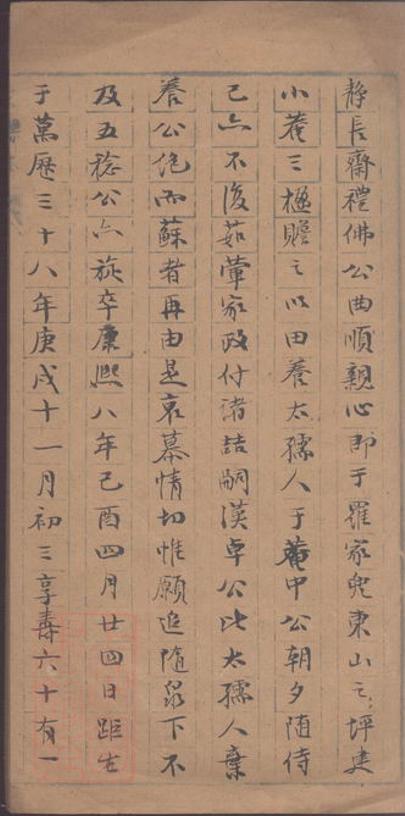 靜長齋禮佛公曲順親心即于羅家兜東山之坪建
小菴三楹贍之以田養太孺人于菴中公朝夕随侍
己亦不復茹葷家政付諸喆嗣漢卓公比太孺人棄
養公絶而蘇者再由是哀慕情切惟願追随泉下不
及五稔公亦旋卒康熈八年己酉四月廿四日距生
于萬歷三十八年庚戌十一月初三享壽六十有一